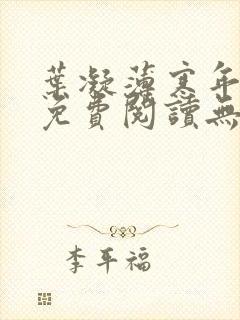 葉凝薄寒年
免費閱讀無
李平福